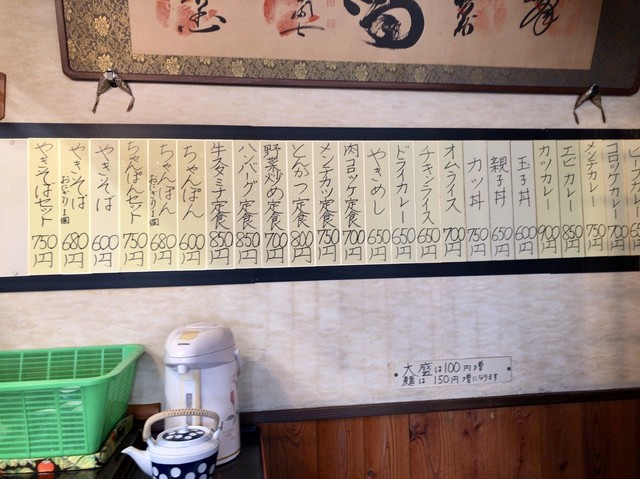 コロッケカレー 700円
メンチカレー 750円
エビカレー 850円
カツカレー 900円
玉子丼 600円
親子丼 650円
カツ丼 750円
オムライス 700円
チキンライス 650円
ドライカレー 650円
やきめし 650円
肉コロッケ定食 700円
メンチカツ定食 750円
とんかつ定食 800円
野菜炒め定食 700円
ハンバーグ定食 850円
牛スタミナ定食 850円
ちゃんぽん 600円
ちゃんぽん おにぎり1個 680円
ちゃんぽんセット 750円
やきそば 600円
やきそば おにぎり1個 680円
やきそばセット 750円
大盛は100円増
麺は150円増になります